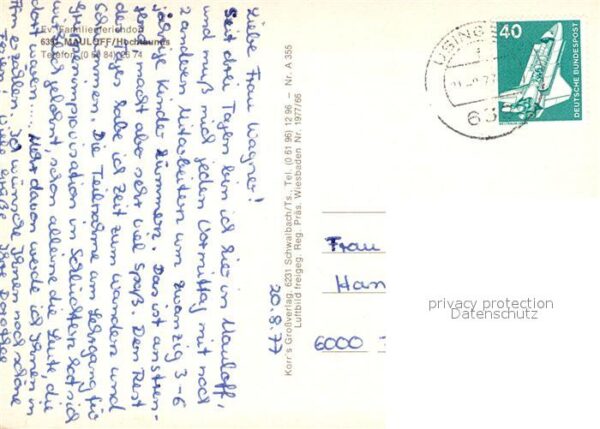 Ev. Familienferiendorf
6391 MAULOFF/Hochtaunus
Telefon (0 60 84) 26 74
Liebe Frau Wagner!
Seit drei Tagen bin ich hier in Mauloff,
und muß mich jeden Vormittag mit noch
2 anderen Mitarbeitern um zwanzig 3-6
jährige Kinder kümmern. Das ist anstren-
gend, macht aber sehr viel Spaß. Den Rest
des Tages habe ich Zeit zum wandern und
schwimmen. Die Teilnahme am Lehrgang für
improvisation in Schlüchtern hat sich
gelohnt, schon alleine die Leute, die
dort waren... Mehr davon werde ich Ihnen in
erzählen. Ich wünsche Ihnen noch schöne
Ferien! Ihre Dorothee
20.8.77
Korr's Großverlag, 6231 Schwalbach/Ts., Tel. (0 61 96) 12 96 – Nr. A 355
Luftbild freigeg. Reg. Präs. Wiesbaden Nr. 1977/66
40
DEUTSCHE BUNDESPOST
USINGEN
Frau
Han
6000
privacy protection
Datenschutz